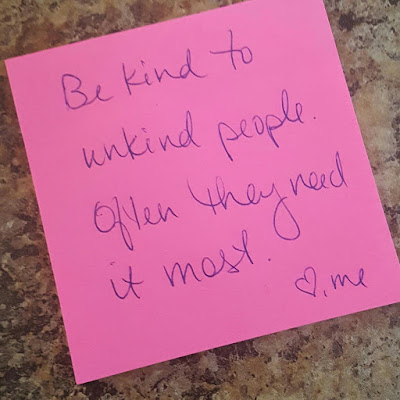 Be kind to
unkind people.
Often they need
it most.
♡, me